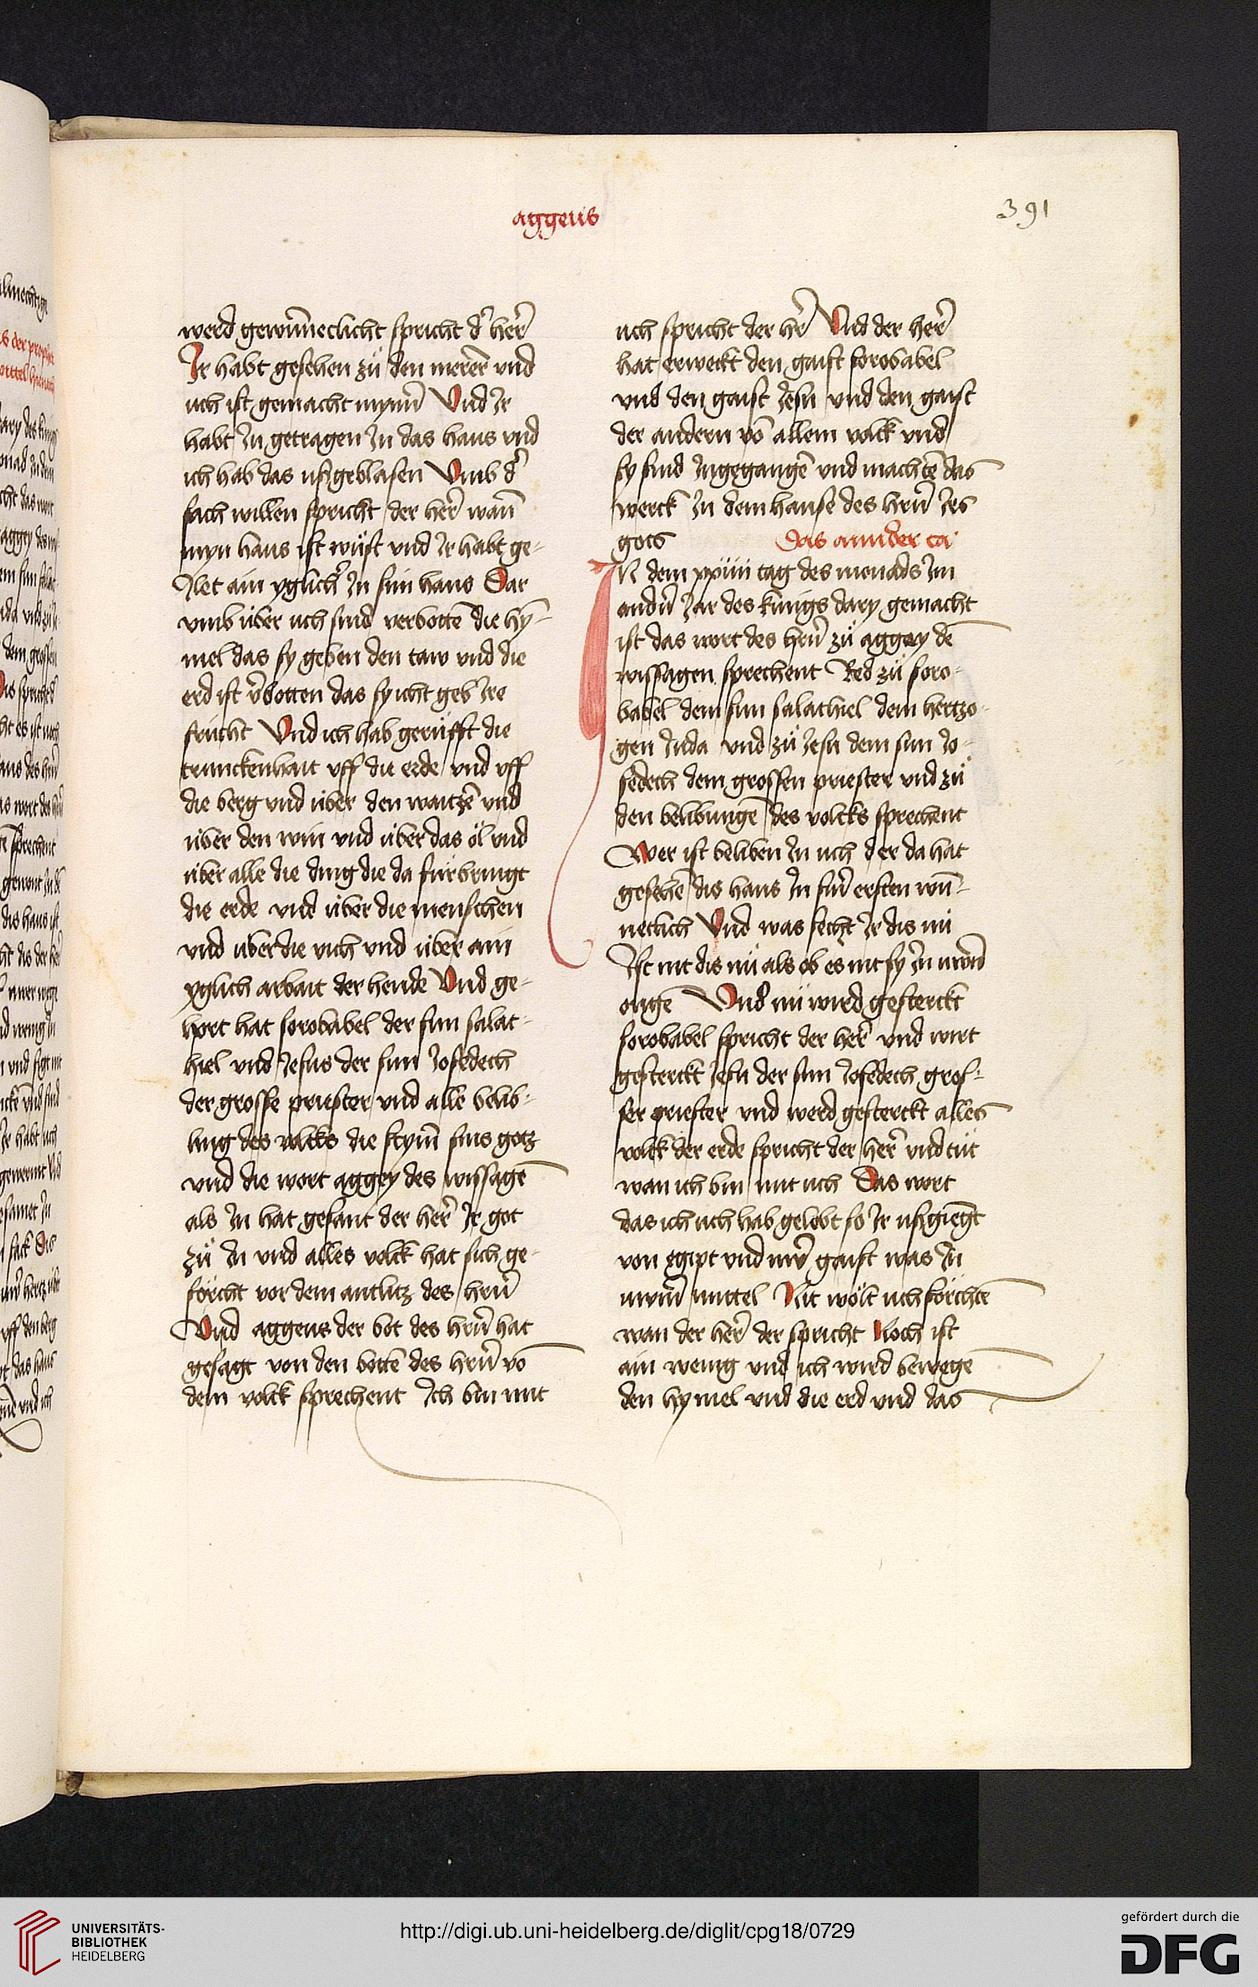 aggeus
391
werd gewu̅neclicht spricht d' her̅
Ir habt gesehen zü den merer̅ vnd
uch ist gemacht mynn̅ Vnd Ir
habt In getragen In das haus vnd
ich hab das ufgeblasen Vmb d'
sach willen spricht der her̅ wan̅
myn haus ist wüst vnd Ir habt ge-
Ilet ain yglich' In sin haus Dar
vmb über uch sind verbotte̅ die hy̅-
mel das sy geben den taw vnd die
erd ist v'botten das sy icht geb Ire
frücht Vnd ich hab gerüfft die
trunckenhait vff die erde vnd vff
die berg vnd über den waitze̅ vnd
über den win vnd über das öl vnd
über alle die ding die da fürbringt
die erde vnd über die menschen
vnd über die vich vnd über ain
yglich arbait der hende Vnd ge-
hort hat sorobabel der sun salat-
hiel vnd Jesus der sun Josedech
der grosse priester vnd alle belib-
ung des volcks die stym̅ sins gotz
vnd die wort aggey des wissage̅
als In hat gesant der her̅ Ir got
zü In vnd alles volck hat sich ge-
förcht vor dem antlitz des hrn̅
Vnd aggeus der bot des hrn̅ hat
gesagt von den botte̅ des hrn̅ vo̅
dem volck sprechent Ich bin mit
uch spricht der hr̅ Vnd der her̅
hat erweckt den gaist sorobabel
vnd den gaist Jesu vnd den gaist
der andern vo̅ allem volck vnd
sy sind Ingegange̅ vnd machte̅ das
werck In dem hause des hrn̅ Irs
gots
Das annder ca
IN dem xxiiii tag des monads Im
andn̅ Jar des künigs dary gemacht
ist das wort des hrn̅ zü aggey de̅
wissagen sprechent Red zü soro-
babel dem sun salathiel dem hertzo-
gen Juda vnd zü Jesu dem sun Jo-
sedech dem grossen priester vnd zü
den belibunge̅ des volcks sprechent
Wer ist beliben In uch der da hat
gesehe̅ dis haus In sin' ersten wu̅-
neclich Vnd was secht Ir dis nü
Ist nit dis nü als ob es nit sy In uwn̅
ouge̅ Vnd nü wird gesterckt
sorobabel spricht der her̅ vnd wirt
gesterckt Jesu der sun Josedech gros-
ser priester vnd werd gesterckt alles
volck der erde spricht der her̅ vnd tüt
wan ich bin mit uch Das wort
das ich uch hab gelobt so Ir ufgiengt
von egipt vnd min̅ gaist was In
uwrm̅ mittel Nit wölt uch förchte̅
wan der her̅ der spricht Noch ist
ain wenig vnd ich wird bewege̅
den hymel vnd die erd vnd das
UNIVERSITÄTS-
BIBLIOTHEK
HEIDELBERG
http://digi.ub.uni-heidelberg.de/diglit/cpg18/0729
gefördert durch die
DFG